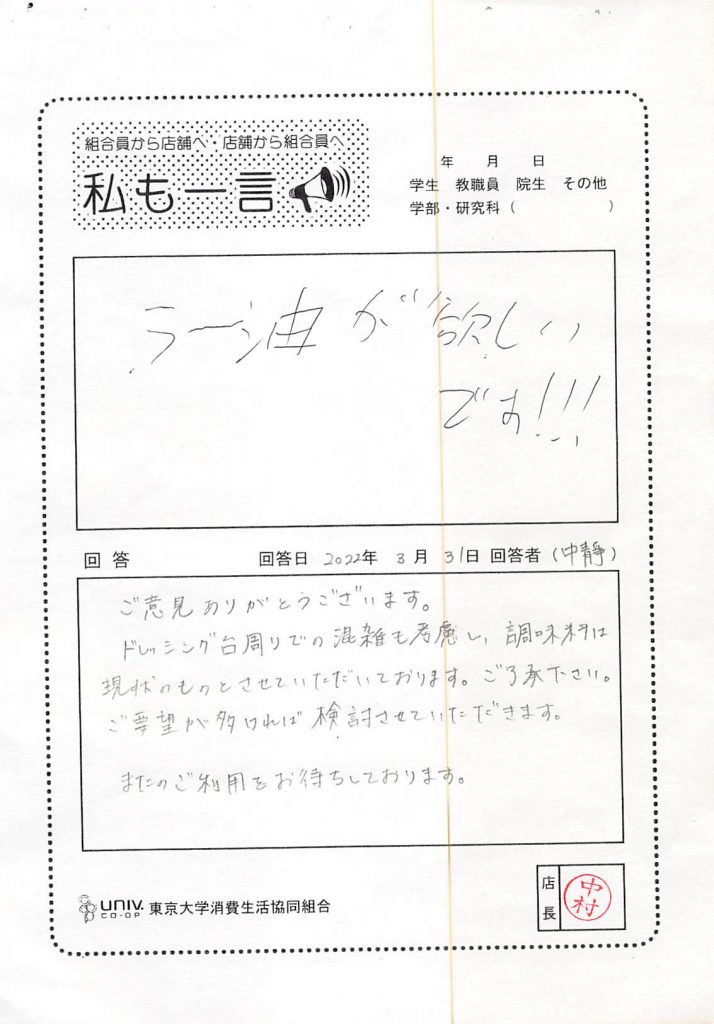 組合員から店舗へ・店舗から組合員へ
私も一言
年 月 日
学生 教職員 院生 その他
学部・研究科( )
ラー油が欲しい
です!!!
回答 回答日 2022年 3月 31日 回答者(中静)
ご意見ありがとうございます。
ドレッシング台周りでの混雑も考慮し、調味料は
現状のものとさせていただいております。ご了承下さい。
ご要望が多ければ検討させていただきます。
またのご利用をお待ちしております。
UNIV.
CO-OP
東京大学消費生活協同組合
店長
中村